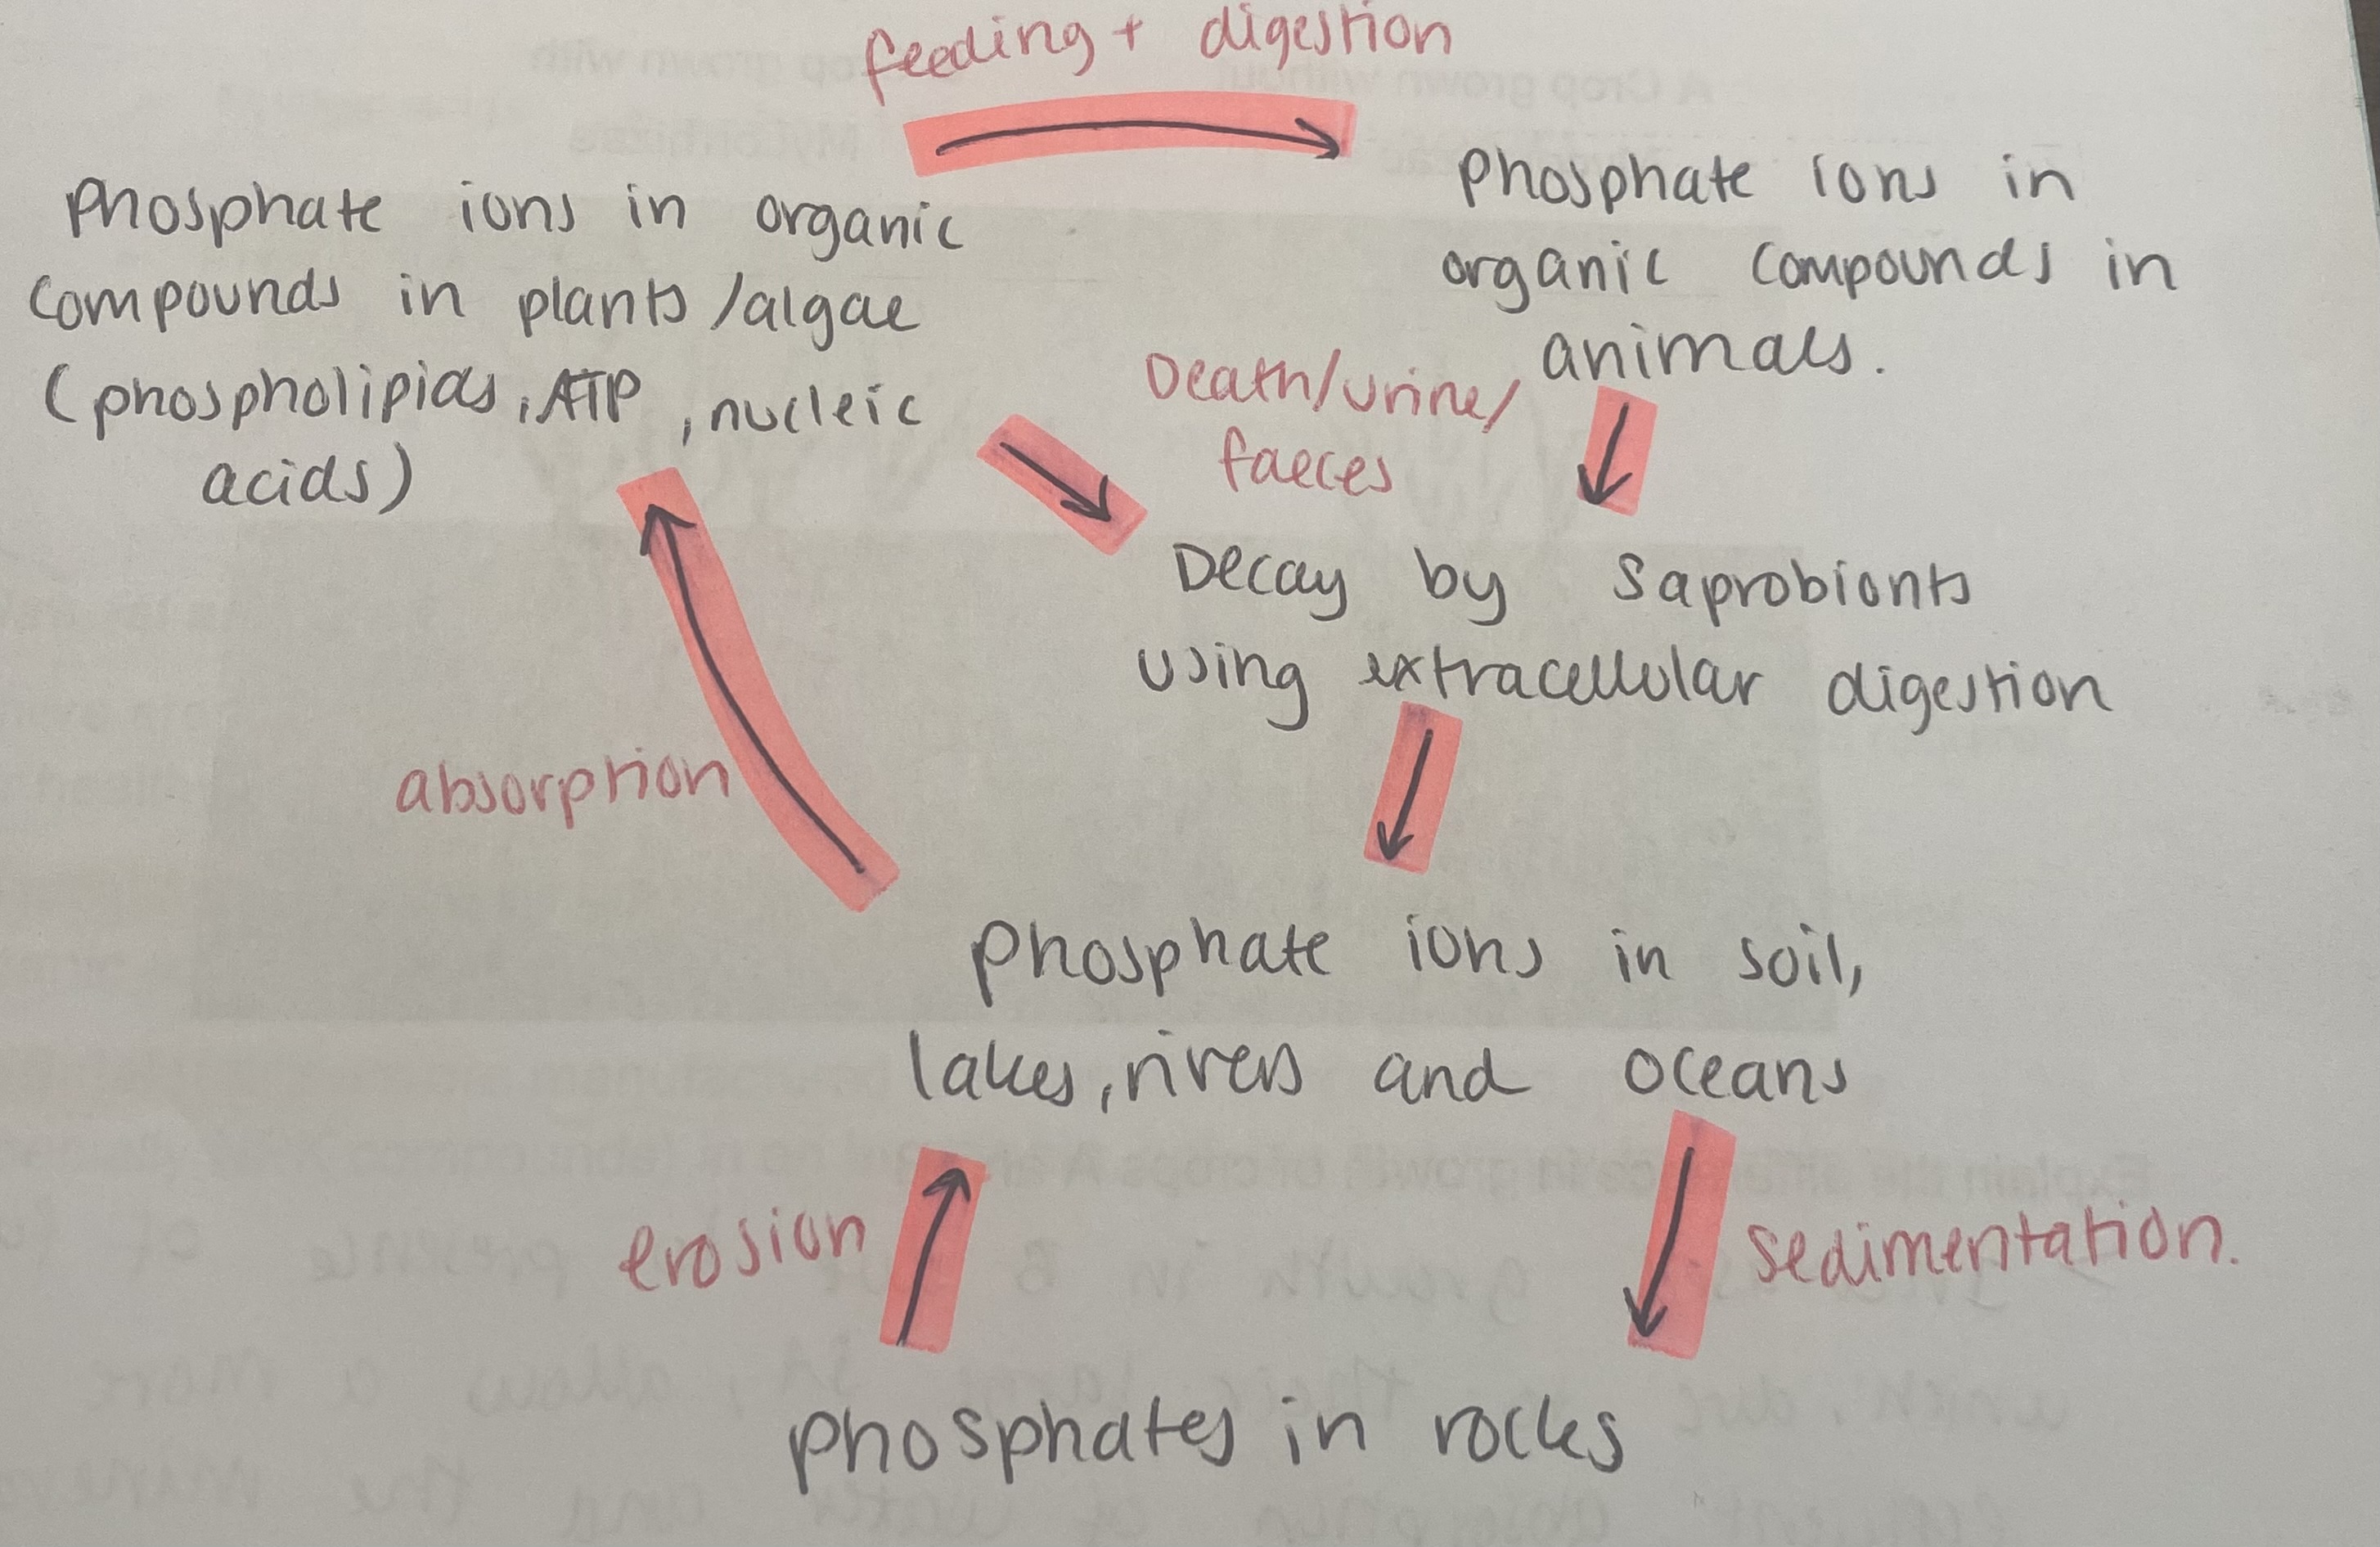 feeding + digestion
Phosphate ions in organic
compounds in plants/algae
(phospholipids, ATP, nucleic
acids)
Phosphate ions in
organic compounds in
animals.
Death/urine/
faeces
Decay by saprobionts
using extracellular digestion
absorption
Phosphate ions in soil,
lakes, rivers and oceans
erosion
sedimentation.
phosphates in rocks